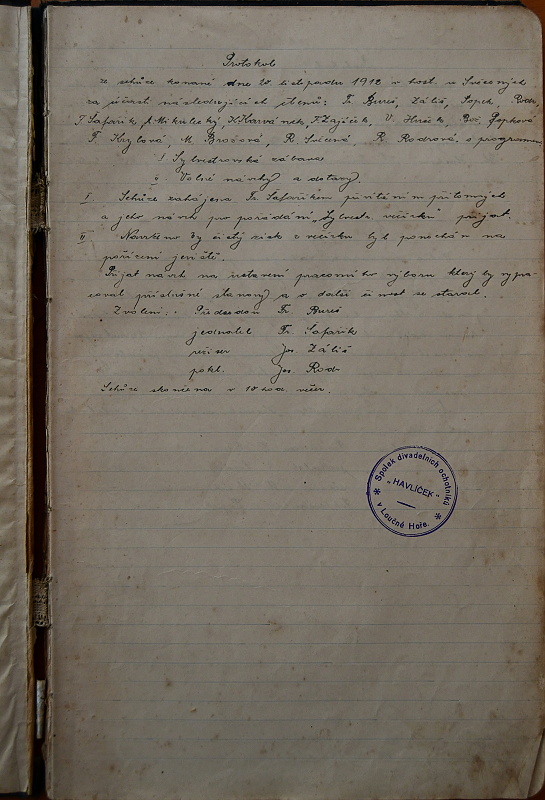 Protokol
ze schůze konané dne 20. listopadu 1912 v host. u Svěcených
za účasti následujících členů: Fr. Bureš, Záliš, Sopek, Rodr,
F. Šafařík, J. Mikulecký, K. Karvánek, F. Zajíček, V. Hnik, Popková
F. Krylová, M. Brožová, R. Svěcená, R. Rodrová. s programem
I Sylvestrovská zábava
II Volné návrhy a dotazy.
I. Schůze zahájena Fr. Šafaříkem přivítáním přítomných
a jeho návrh pro pořádání „Sylvestr. večírku" přijat.
II Navrženo by čistý zisk z večírku byl ponechán na
pořízení jeviště.
Přijat návrh na ustavení pracovního výboru který by vypra-
coval příslušné stanovy a o další činnost se staral.
Zvoleni: Předsedou Fr. Bureš
jednatel Fr. Šafařík
režiser Jos. Záliš
pokl. Jos. Rodr
Schůze skončena v 10 hod. večer.
Spolek divadelních ochotníků
„HAVLÍČEK"
v Loučné Hoře.